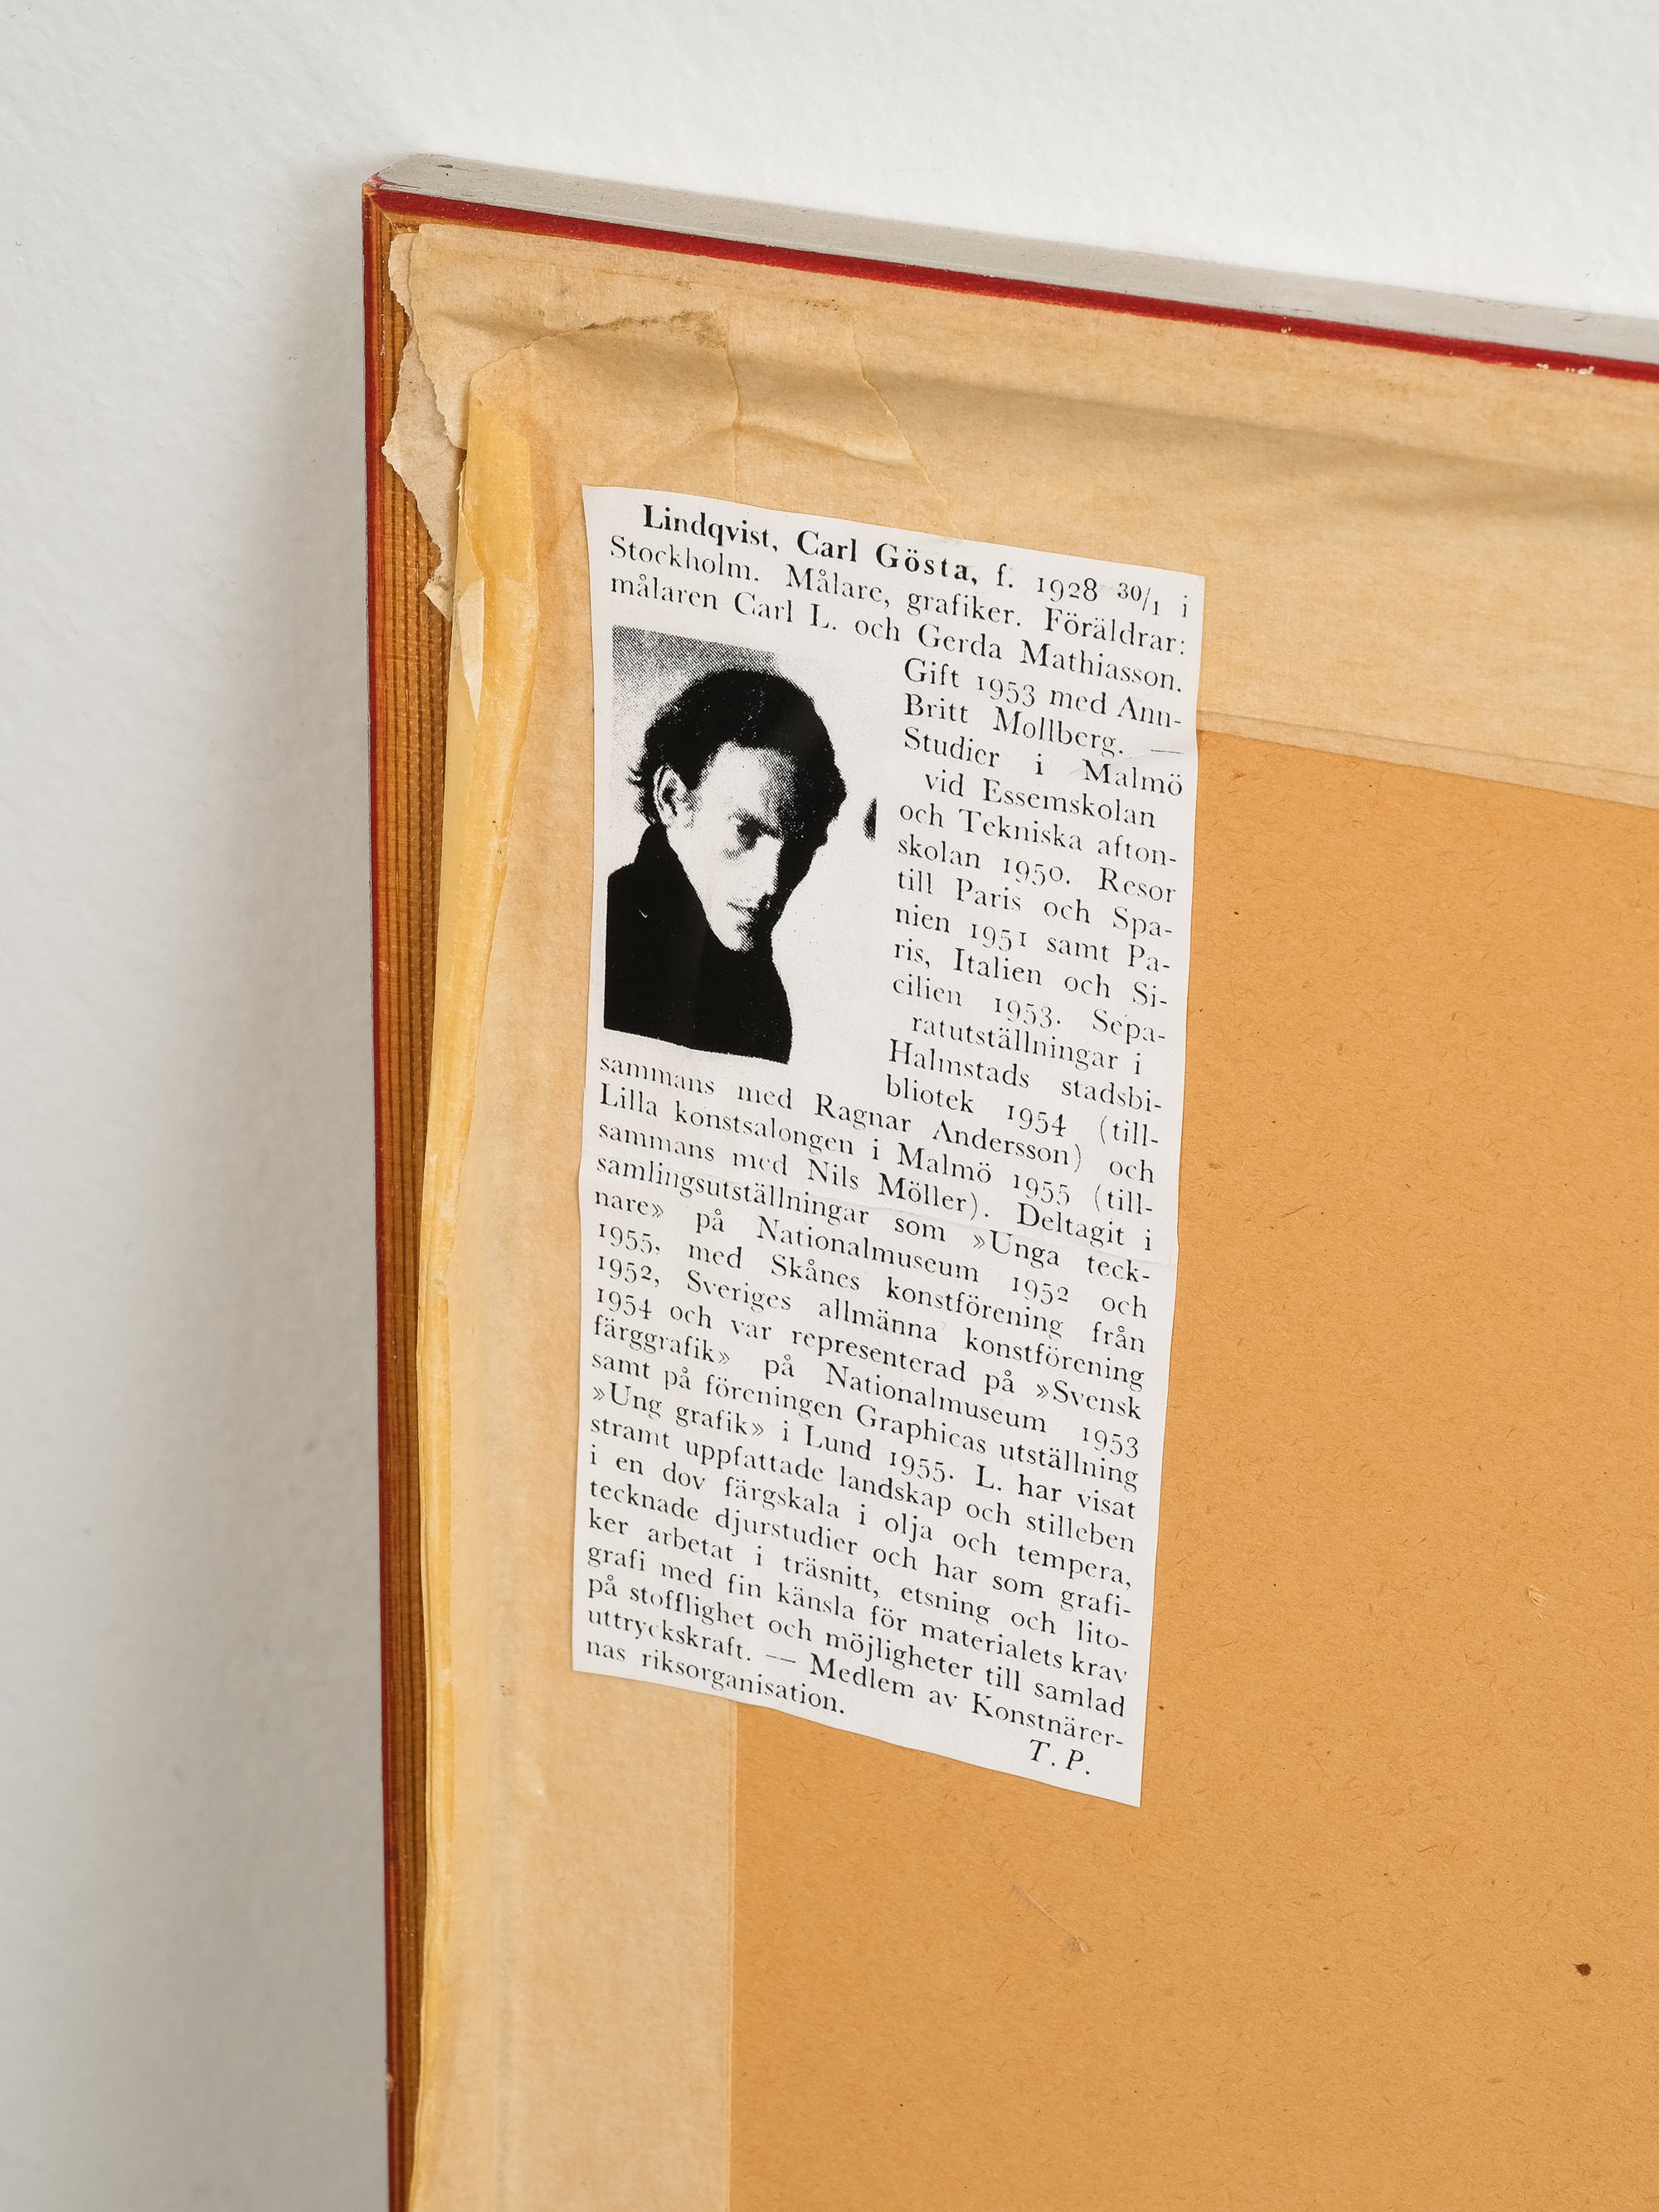 Lindqvist, Carl Gösta, f. 1928 30/1 i
Stockholm. Målare, grafiker. Föräldrar:
målaren Carl L. och Gerda Mathiasson.
Gift 1953 med Ann-
Britt Mollberg. —
Studier i Malmö
vid Essemskolan
och Tekniska afton-
skolan 1950. Resor
till Paris och Spa-
nien 1951 samt Pa-
ris, Italien och Si-
cilien 1953. Sepa-
ratutställningar i
Halmstads stadsbi-
bliotek 1954 (till-
sammans med Ragnar Andersson) och
Lilla konstsalongen i Malmö 1955 (till-
sammans med Nils Möller). Deltagit i
samlingsutställningar som »Unga teck-
nare» på Nationalmuseum 1952 och
1955, med Skånes konstförening från
1952, Sveriges allmänna konstförening
1954 och var representerad på »Svensk
färggrafik» på Nationalmuseum 1953
samt på föreningen Graphicas utställning
»Ung grafik» i Lund 1955. L. har visat
stramt uppfattade landskap och stilleben
i en dov färgskala i olja och tempera,
tecknade djurstudier och har som grafi-
ker arbetat i träsnitt, etsning och lito-
grafi med fin känsla för materialets krav
på stofflighet och möjligheter till samlad
uttryckskraft. — Medlem av Konstnärer-
nas riksorganisation.
T. P.